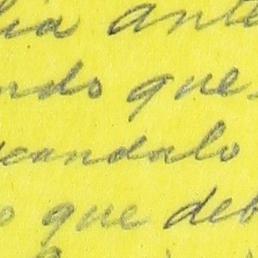 ia ante
ndo que
scandalo
o que deb